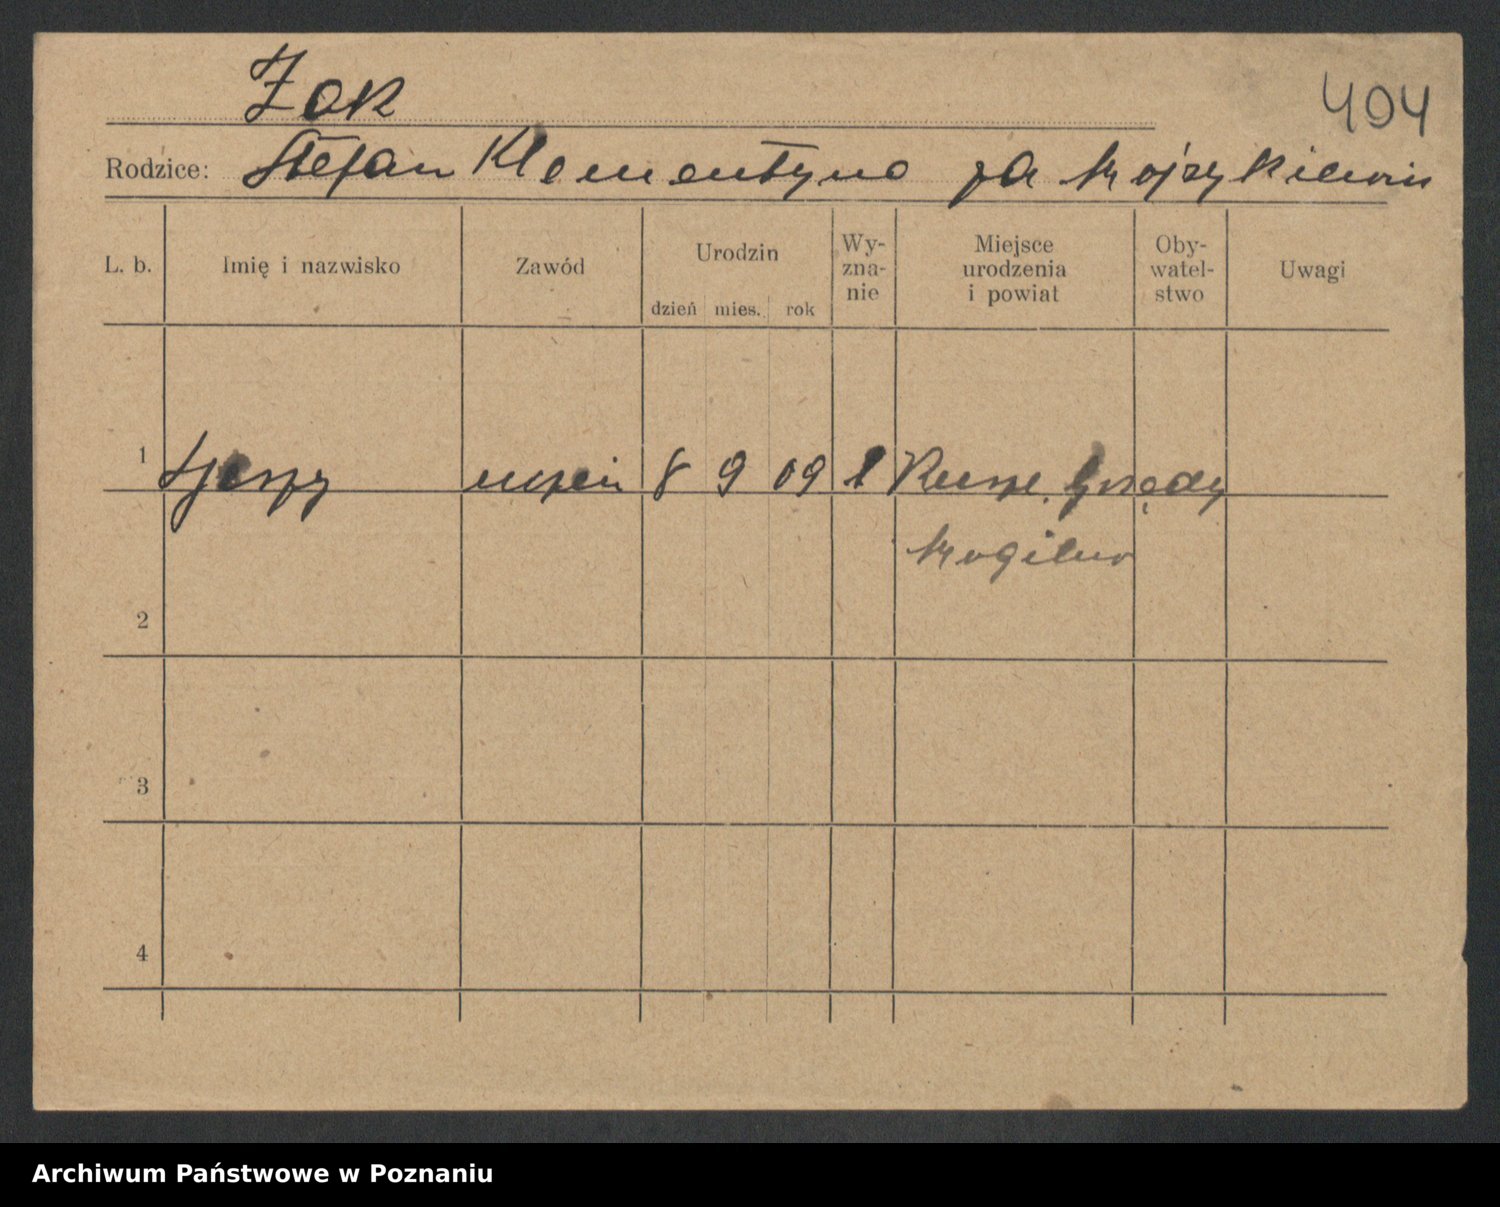 Żak
404
Rodzice: Stefan Klementyna za Mojzykiewicz
L. b. Imię i nazwisko Zawód Urodzin dzień mies. rok Wy-zna-nie Miejsce urodzenia i powiat Oby-watel-stwo Uwagi
1 Jerzy uczeń 8 9 09 Grzędy
Mogilno
2
3
4
Archiwum Państwowe w Poznaniu